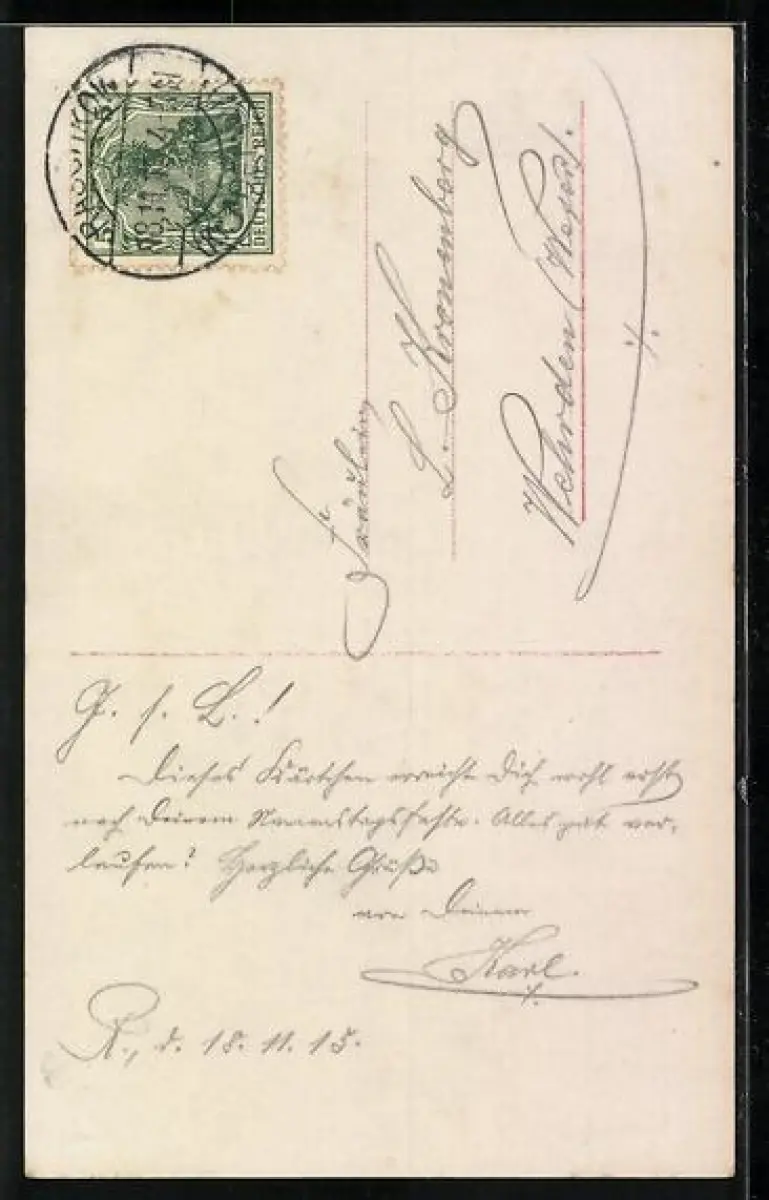 DEUTSCHES REICH
Fräulein
L. Kronenberg
Wehrden (Weser).
G. s. L.!
Dieses Kärtchen erreicht Dich wohl erst
nach Deinem Namenstagsfeste. Alles gut ver-
laufen? Herzliche Grüße
von Deinem
Karl.
R., d. 18. 11. 15.